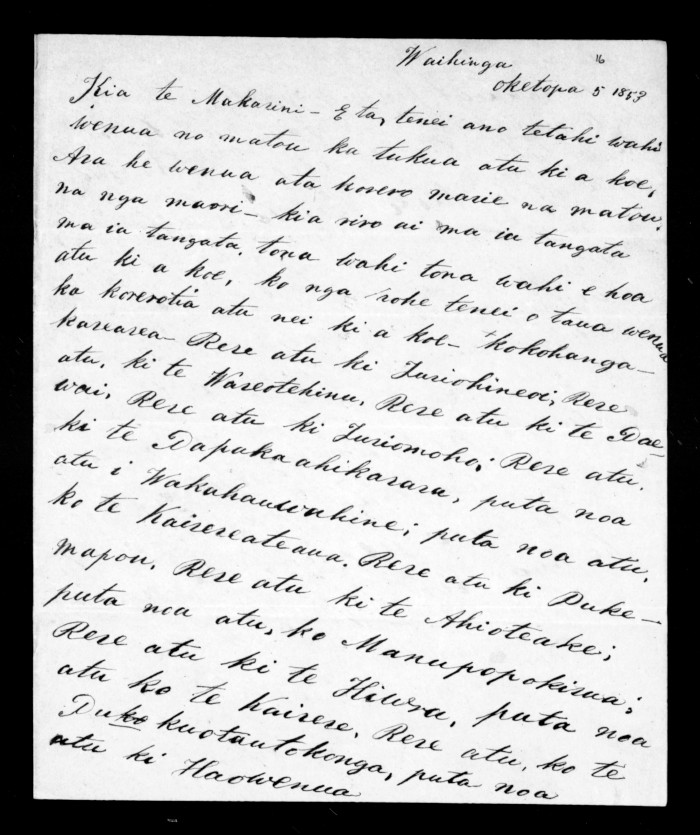 Waihinga
16
oketopa 5 1853
Kia te Makarini - E ta, tenei ano tetahi wahi
wenua no matou ka tukua atu ki a koe,
Ara he wenua ata korero marie na matou,
na nga maori - kia riro ai ma ia tangata
ma ia tangata. tona wahi tona wahi e hoa
atu ki a koe, ko nga rohe tenei o taua wenua
ka korerotia atu nei ki a koe - Kokohanga-
karearea - Rere atu ki Turiohineoi, Rere
atu, ki te Wareotehinu, Rere atu ki te Pae-
wai, Rere atu ki Turiomoho; Rere atu,
ki te Papukaahikarara, puta noa
atu i Wakahauwahine; puta noa atu,
ko te Kairereateaua. Rere atu ki Puke-
mapou, Rere atu ki te Ahioteake;
puta noa atu, ko Manupopokirua;
Rere atu ki te Hiwra, puta noa
atu ko te Kairere, Rere atu, ko te
Puke kuotautokonga, puta noa
atu ki Haowenua